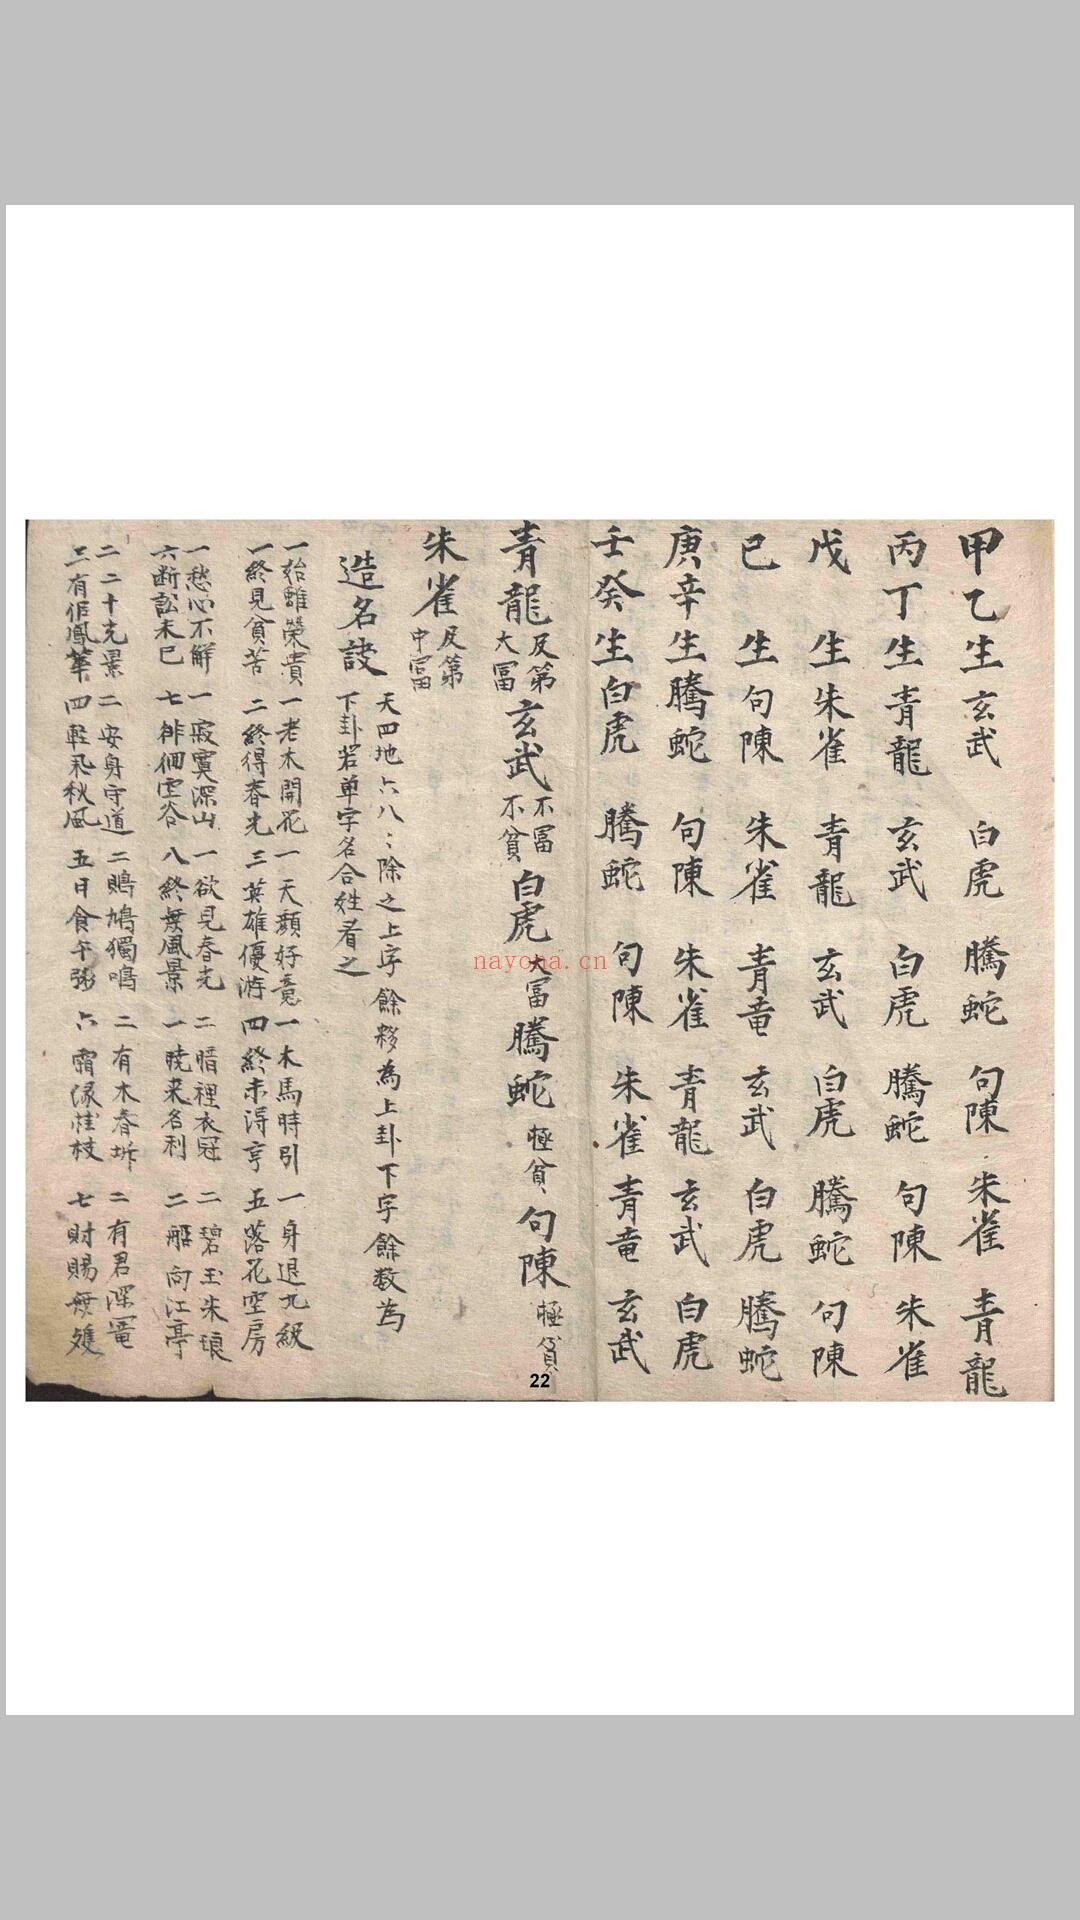 甲乙生玄武 白虎 騰蛇 句陳 朱雀 青龍
丙丁生青龍 玄武 白虎 騰蛇 句陳 朱雀
戊 生朱雀 青龍 玄武 白虎 騰蛇 句陳
己 生句陳 朱雀 青竜 玄武 白虎 騰蛇
庚辛生騰蛇 句陳 朱雀 青龍 玄武 白虎
壬癸生白虎 騰蛇 句陳 朱雀 青竜 玄武
青龍 及第大冨 玄武 不冨不贫 白虎 大冨 騰蛇 極貧 句陳 極貧
朱雀 及第中冨
造名訣
天四地六八〻除之上字餘数為上卦下字餘数為
下卦若单字名合姓看之
一始雖榮貴 一老木開花 一天顔好意 一木馬時引 一身退九級
一終見貧苦 二終得春光 三英雄優游 四終未得亨 五落花空房
一愁心不解 一寂寞深山 一欲見春光 二暗裡衣冠 二碧玉朱琅
六断訟未已 七徘徊空谷 八終無風景 一晓来名利 二船向江亭
二二十光景 二安身守道 二鵙鳩獨鳴 二有木春坼 二有君深
三有佀鳳筆 四輕飛秋風 五日食午弼 六霜緣桂枝 七財賜無獲
nayona.cn
22